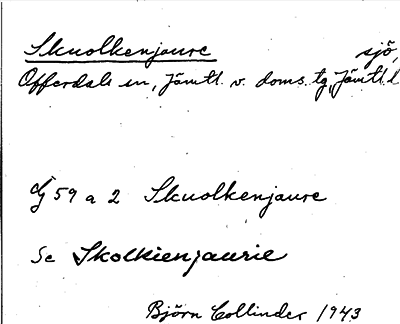 Skuolkenjaure sjö,
Offerdals sn, Jämtl. v. doms. tg, Jämtl. l
59 a 2 Skuolkenjaure
Se Skolkienjaurie
Björn Collinder 1943